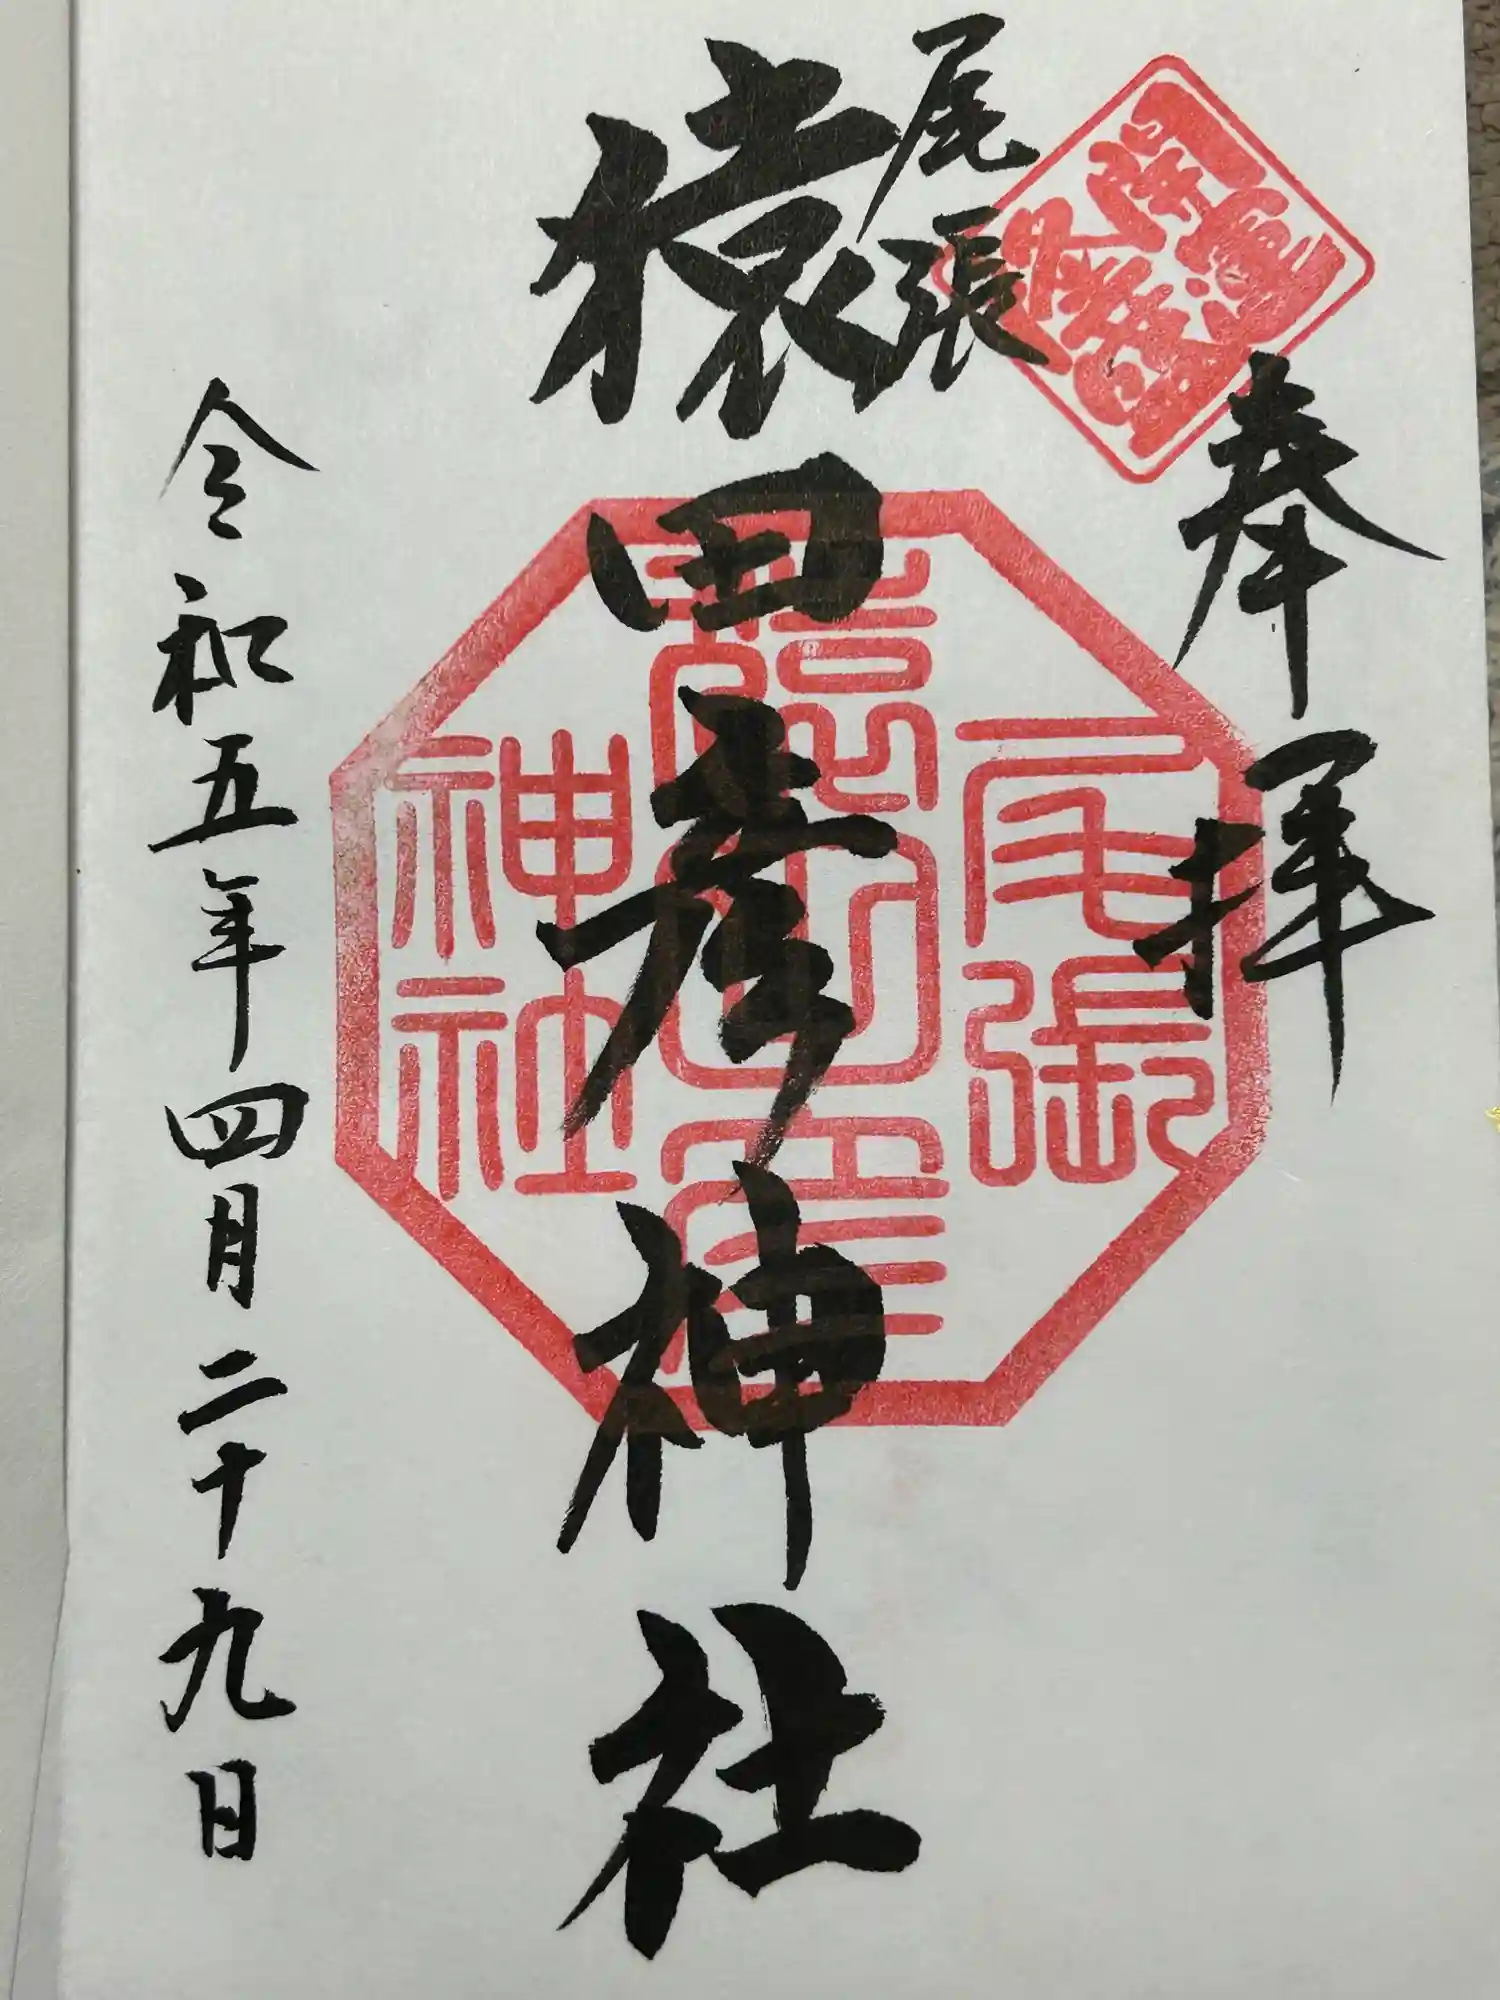 開運
招福
奉拝
尾張
猿田彦神社
尾張
猿田彦
神社
令和五年四月二十九日